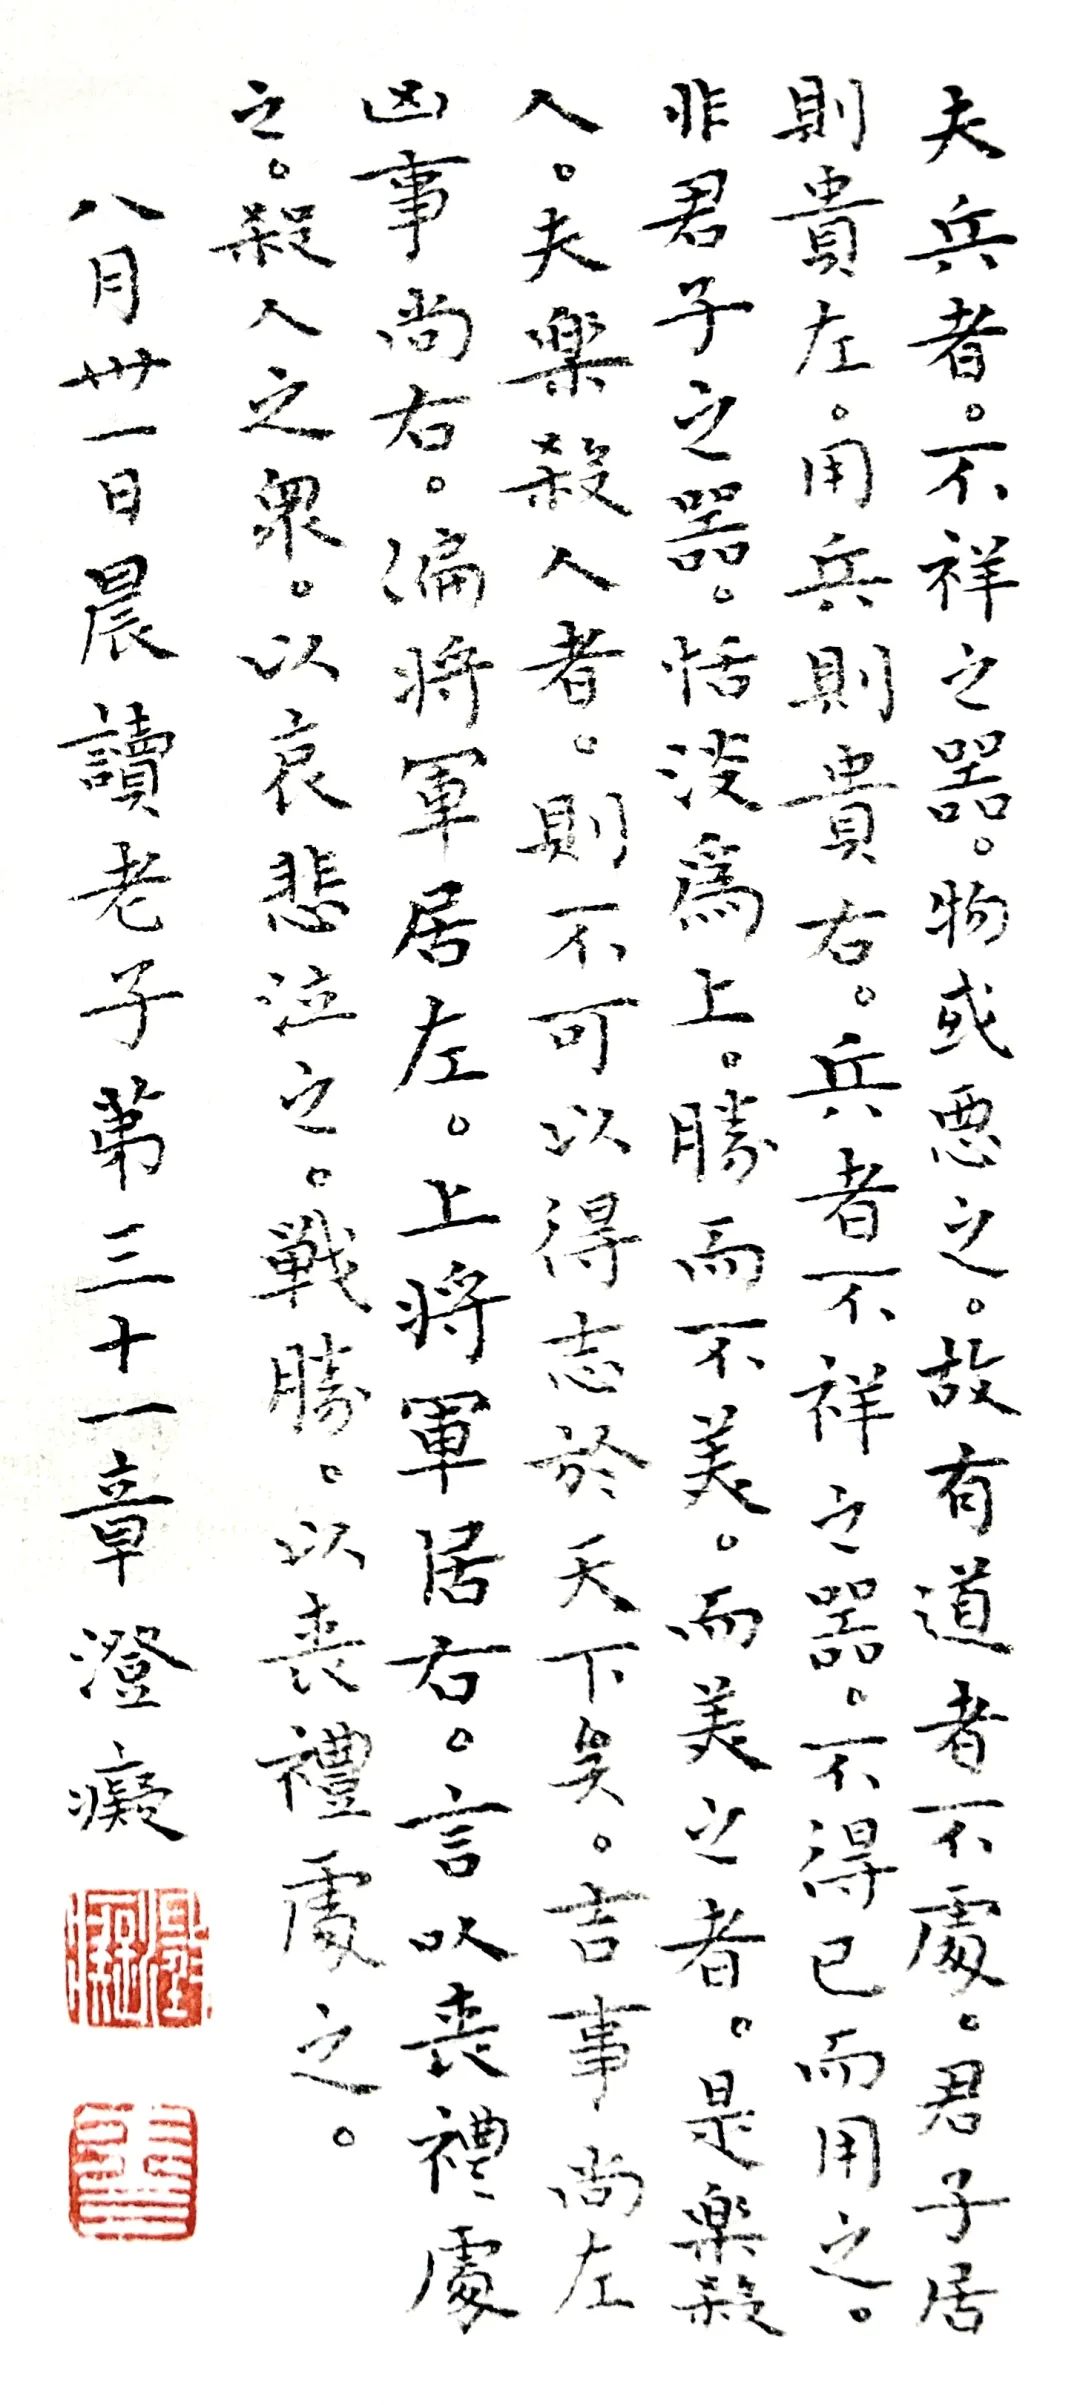 夫兵者。不祥之器。物或惡之。故有道者不處。君子居
則貴左。用兵則貴右。兵者不祥之器。不得已而用之。
非君子之器。恬淡為上。勝而不美。而美之者。是樂殺
人。夫樂殺人者。則不可以得志於天下矣。吉事尚左
凶事尚右。偏將軍居左。上將軍居右。言以喪禮處
之。殺人之眾。以哀悲泣之。戰勝。以喪禮處之。
八月卅一日晨讀老子第三十一章澄癡